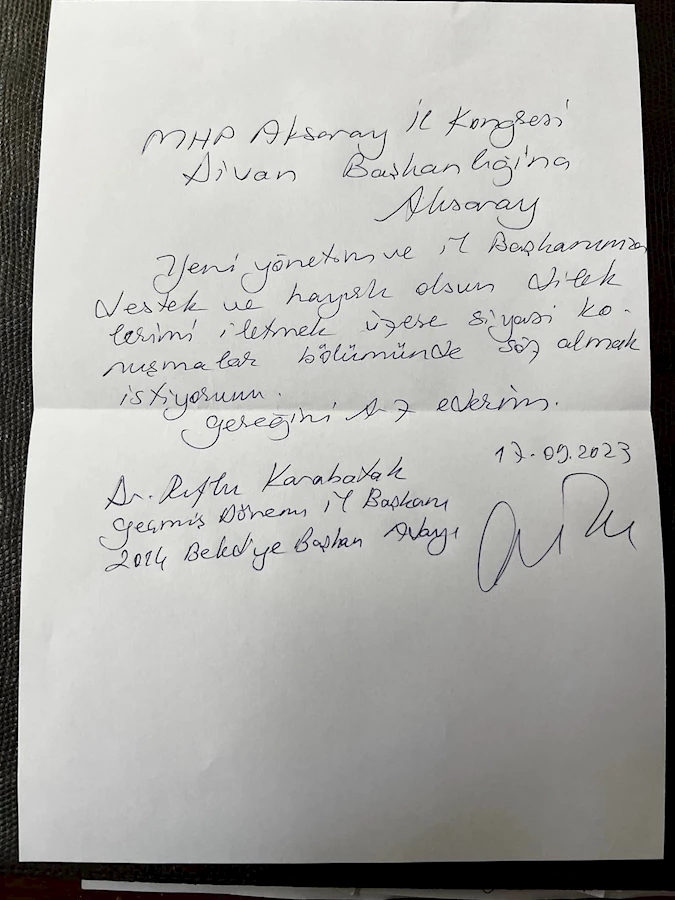 MHP Aksaray İl Kongresi
Divan Başkanlığına
Aksaray
Yeni yönetim ve il Başkanımıza
destek ve hayırlı olsun dilek
lerimi iletmek üzere siyasi ko-
nuşmalar bölümünde söz almak
istiyorum.
Gereğini Arz ederim.
17.09.2023
Dr. Rıfkı Karabatak
Geçmiş Dönem il Başkanı
2014 Belediye Başkan Adayı